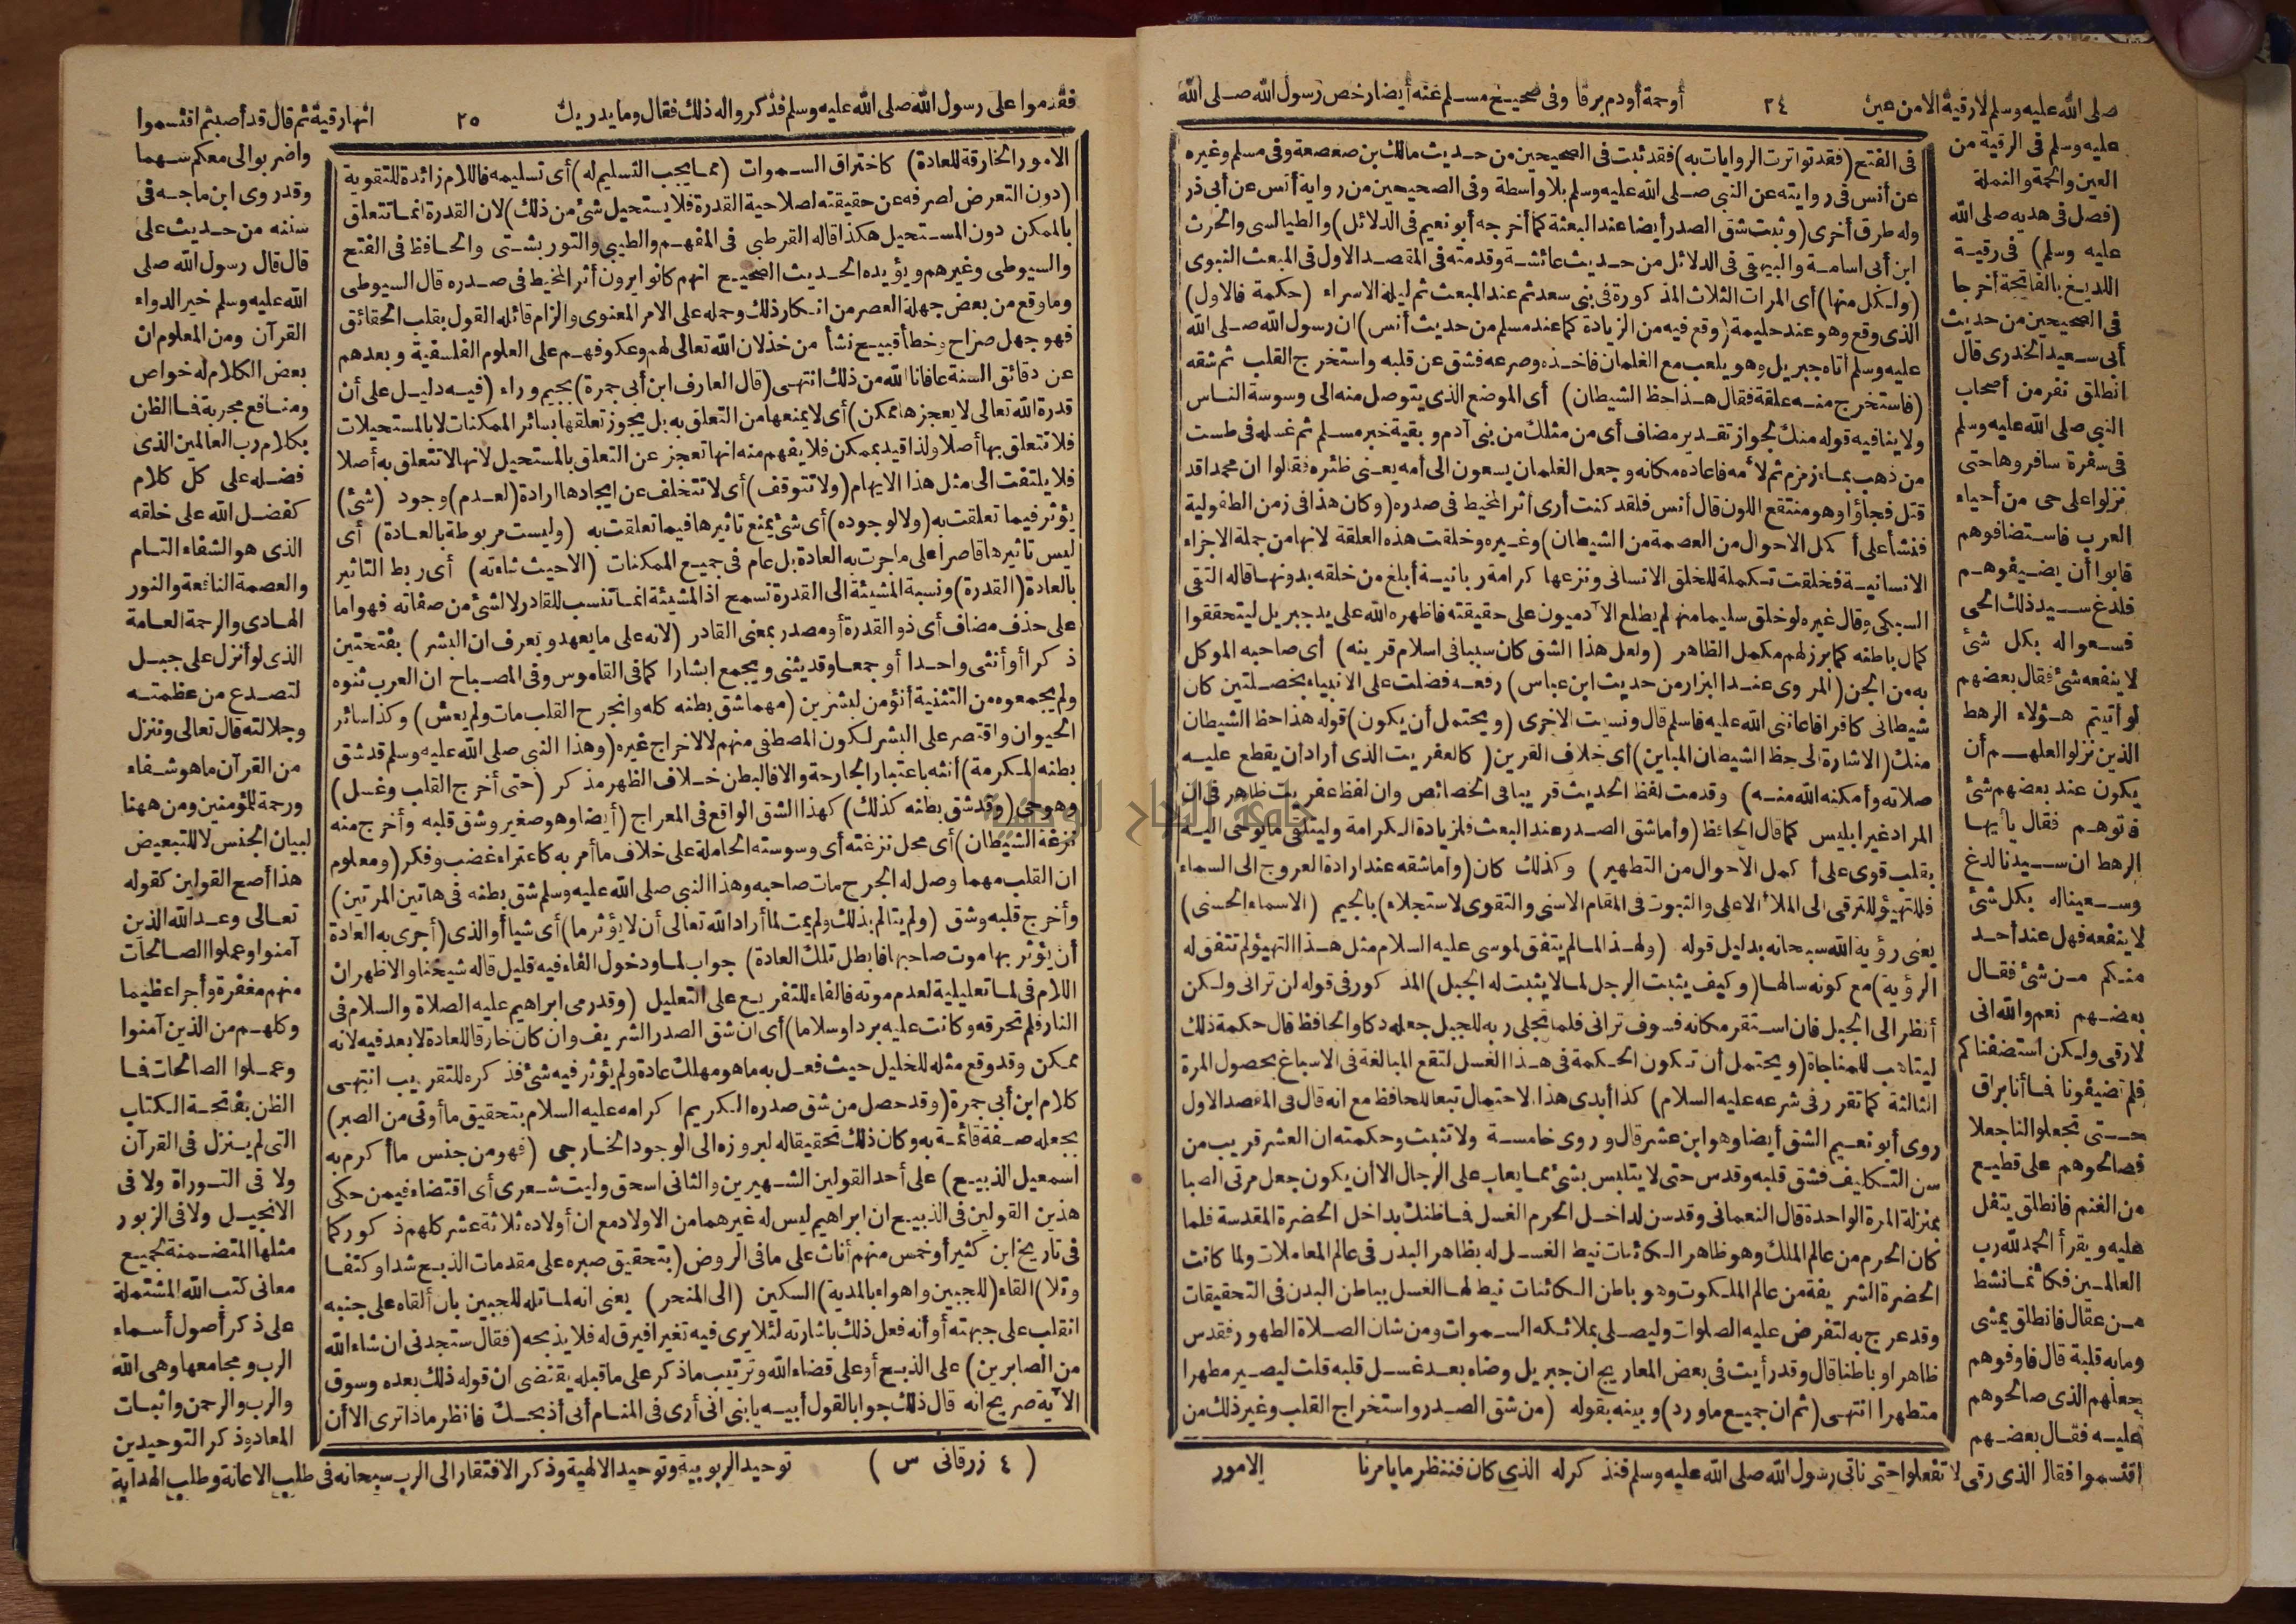 صلى الله عليه وسلم لا رقية الا من عين
٢٤
أو حمة أو دم يرقا وفى صحيح مسلم عنه أيضا رخص رسول الله صلى الله
عليه وسلم فى الرقية من
العين والحمة والنملة
(فصل فى هديه صلى الله
عليه وسلم) فى رقية
اللديغ بالفاتحة أخرجا
فى الصحيحين من حديث
أبى سعيد الخدرى قال
انطلق نفر من أصحاب
النبي صلى الله عليه وسلم
فى سفرة سافروها حتى
نزلوا على حى من أحياء
العرب فاستضافوهم
فابوا أن يضيفوهم
فلدغ سيد ذلك الحى
فسعوا له بكل شئ
لا ينفعه شئ فقال بعضهم
لو أتيتم هؤلاء الرهط
الذين نزلوا لعلهم أن
يكون عند بعضهم شئ
فاتوهم فقالوا يا أيها
الرهط ان سيدنا لدغ
وسعينا له بكل شئ
لا ينفعه فهل عند أحد
منكم من شئ فقال
بعضهم نعم والله انى
لارقى ولكن استضفناكم
فلم تضيفونا فما أنا براق
حتى تجعلوا لنا جعلا
فصالحوهم على قطيع
من الغنم فانطلق يتفل
عليه ويقرأ الحمد لله رب
العالمين فكأنما نشط
من عقال فانطلق يمشى
وما به قلبة قال فاوفوهم
جعلهم الذى صالحوهم
عليه فقال بعضهم
اقتسموا فقال الذى رقى لا تفعلوا حتى ناتى رسول الله صلى الله عليه وسلم فنذكر له الذى كان فننظر ما يامرنا
فى الفتح (فقد تواترت الروايات به) فقد ثبت فى الصحيحين من حديث مالك بن صعصعة وفى مسلم وغيره
عن أنس فى روايته عن النبي صلى الله عليه وسلم بلا واسطة وفى الصحيحين من رواية أنس عن أبى ذر
وله طرق أخرى (وثبت شق الصدر أيضا عند البعثة كما أخرجه أبو نعيم فى الدلائل) والطيالسى والحرث
ابن أبى اسامة والبيهقى فى الدلائل من حديث عائشة وقدمته فى المقصد الاول فى المبعث النبوى
(ولكل منها) أى المرات الثلاث المذكورة فى بنى سعد ثم عند المبعث ثم ليلة الاسراء (حكمة فالاول)
الذى وقع وهو عند حليمة (وقع فيه من الزيادة كما عند مسلم من حديث أنس) ان رسول الله صلى الله
عليه وسلم أتاه جبريل وهو يلعب مع الغلمان فاخذه وصرعه فشق عن قلبه واستخرج القلب ثم شقه
(فاستخرج منه علقة فقال هذا حظ الشيطان) أى الموضع الذى يتوصل منه الى وسوسة الناس
ولا ينافيه قوله منك لجواز تقدير مضاف أى من مثلك من بنى آدم وبقية خبر مسلم ثم غسله فى طست
من ذهب بماء زمزم ثم لأمه فاعاده مكانه وجعل الغلمان يسعون الى أمه يعنى ظئره فقالوا ان محمدا قد
قتل فجاؤا وهو منتقع اللون قال أنس فلقد كنت أرى أثر المخيط فى صدره (وكان هذا فى زمن الطفولية
فنشأ على أكمل الاحوال من العصمة من الشيطان) وغيره وخلقت هذه العلقة لانها من جملة الاجزاء
الانسانية فخلقت تكملة للخلق الانسانى ونزعها كرامة ربانية أبلغ من خلقه بدونها قاله التقى
السبكى وقال غيره لو خلق سليما منها لم يطلع الآدميون على حقيقته فاظهره الله على يد جبريل ليتحققوا
كمال باطنه كما برز لهم مكمل الظاهر (ولعل هذا الشق كان سببا فى اسلام قرينه) أى صاحبه الموكل
به من الجن (المروى عند البزار من حديث ابن عباس) رفعه فضلت على الانبياء بخصلتين كان
شيطانى كافرا فاعاننى الله عليه فاسلم قال ونسيت الاخرى (ويحتمل أن يكون) قوله هذا حظ الشيطان
منك (الاشارة الى حظ الشيطان المباين) أى خلاف القرين (كالعفريت الذى أراد أن يقطع عليه
صلاته وأمكنه الله منه) وقدمت لفظ الحديث قريبا فى الخصائص وان لفظ عفريت ظاهر فى ان
المراد غير ابليس كما قال الحافظ (وأما شق الصدر عند البعث فلزيادة الكرامة وليتلقى ما يوحى اليه
بقلب قوى على أكمل الاحوال من التطهير) وكذلك كان (وأما شقه عند ارادة العروج الى السماء
فللتهيؤ للترقى الى الملأ الاعلى والثبوت فى المقام الاسنى والتقوى لاستجلاء) بالجيم (الاسماء الحسنى)
يعنى رؤية الله سبحانه بدليل قوله (ولهذا لما لم يتفق لموسى عليه السلام مثل هذا التهيؤ لم تتفق له
الرؤية) مع كونه سالها (وكيف يثبت الرجل لما لا يثبت له الجبل) المذكور فى قوله لن ترانى ولكن
أنظر الى الجبل فان استقر مكانه فسوف ترانى فلما تجلى ربه للجبل جعله دكا والحافظ قال حكمة ذلك
ليتاهب للمناجاة (ويحتمل أن تكون الحكمة فى هذا الغسل لتقع المبالغة فى الاسباغ بحصول المرة
الثالثة كما تقرر فى شرعه عليه السلام) كذا أبدى هذا الاحتمال تبعا للحافظ مع انه قال فى المقصد الاول
روى أبو نعيم الشق أيضا وهو ابن عشر قال وروى خامسة ولا تثبت وحكمته ان العشر قريب من
سن التكليف فشق قلبه وقدس حتى لا يتلبس بشئ مما يعاب على الرجال الا أن يكون جعل مرتى الصبا
بمنزلة المرة الواحدة قال النعمانى وقد سن لداخل الحرم الغسل فما ظنك بداخل الحضرة المقدسة فلما
كان الحرم من عالم الملك وهو ظاهر الكائنات نيط الغسل له بظاهر البدن فى عالم المعاملات ولما كانت
الحضرة الشريفة من عالم الملكوت وهو باطن الكائنات نيط لها الغسل بباطن البدن فى التحقيقات
وقد عرج به لتفرض عليه الصلوات وليصلى بملائكه السموات ومن شان الصلاة الطهور فقدس
ظاهرا وباطنا قال وقد رأيت فى بعض المعاريج ان جبريل وضاه بعد غسل قلبه قلت ليصير مطهرا
متطهرا انتهى (ثم ان جميع ما ورد) وبينه بقوله (من شق الصدر واستخراج القلب وغير ذلك من
الامور
فقدموا على رسول الله صلى الله عليه وسلم فذكروا له ذلك فقال وما يدريك
٢٥
انها رقية ثم قال قد أصبتم اقتسموا
الامور الخارقة للعادة) كاختراق السموات (مما يجب التسليم له) أى تسليمه فاللام زائدة للتقوية
(دون التعرض لصرفه عن حقيقته لصلاحية القدرة فلا يستحيل شئ من ذلك) لان القدرة انما تتعلق
بالممكن دون المستحيل هكذا قاله القرطبى فى المفهم والطيبى والتوربشتى والحافظ فى الفتح
والسيوطى وغيرهم ويؤيده الحديث الصحيح انهم كانوا يرون أثر المخيط فى صدره قال السيوطى
وما وقع من بعض جهلة العصر من انكار ذلك وحمله على الامر المعنوى والزام قائله القول بقلب الحقائق
فهو جهل صراح وخطأ قبيح نشأ من خذلان الله تعالى لهم وعكوفهم على العلوم الفلسفية وبعدهم
عن دقائق السنة عافانا الله من ذلك انتهى (قال العارف ابن أبى جمرة) بجيم وراء (فيه دليل على أن
قدرة الله تعالى لا يعجزها ممكن) أى لا يمنعها من التعلق به بل يجوز تعلقها بسائر الممكنات لا بالمستحيلات
فلا تتعلق بها أصلا ولذا قيد بممكن فلا يفهم منه انها تعجز عن التعلق بالمستحيل لانها لا تتعلق به أصلا
فلا يلتفت الى مثل هذا الايهام (ولا تتوقف) أى لا تتخلف عن ايجادها ارادة (لعدم) وجود (شئ)
يؤثر فيما تعلقت به (ولا لوجوده) أى شئ يمنع تاثيرها فيما تعلقت به (وليست مربوطة بالعادة) أى
ليس تاثيرها قاصرا على ما جرت به العادة بل عام فى جميع الممكنات (الا حيث شاءته) أى ربط التاثير
بالعادة (القدرة) ونسبة المشيئة الى القدرة تسمح اذ المشيئة انما تنسب للقادر لا لشئ من صفاته فهو اما
على حذف مضاف أى ذو القدرة أو مصدر بمعنى القادر (لانه على ما يعهد ويعرف ان البشر) بفتحتين
ذكرا أو أنثى واحدا أو جمعا وقد يثنى ويجمع ابشارا كما فى القاموس وفى المصباح ان العرب ثنوه
ولم يجمعوه من التثنية أنؤمن لبشرين (مهما شق بطنه كله وانجرح القلب مات ولم يعش) وكذا سائر
الحيوان واقتصر على البشر لكون المصطفى منهم لا لاخراج غيره (وهذا النبي صلى الله عليه وسلم قد شق
بطنه المكرمة) أنثه باعتبار الجارحة والا فالبطن خلاف الظهر مذكر (حتى أخرج القلب وغسل)
وهو حى (وقد شق بطنه كذلك) كهذا الشق الواقع فى المعراج (أيضا وهو صغير وشق قلبه وأخرج منه
نزغة الشيطان) أى محل نزغته أى وسوسته الحاملة على خلاف ما أمر به كاعتراء غضب وفكر (ومعلوم
ان القلب مهما وصل له الجرح مات صاحبه وهذا النبي صلى الله عليه وسلم شق بطنه فى هاتين المرتين)
وأخرج قلبه وشق (ولم يتالم بذلك ولم يمت لما أراد الله تعالى أن لا يؤثر ما) أى شيا أو الذى (أجرى به العادة
أن يؤثر بها موت صاحبها فابطل تلك العادة) جواب لما ودخول الفاء فيه قليل قاله شيخنا والاظهر ان
اللام فى لما تعليلية لعدم موته فالفاء للتفريع على التعليل (وقد رمى ابراهيم عليه الصلاة والسلام فى
النار فلم تحرقه وكانت عليه بردا وسلاما) أى ان شق الصدر الشريف وان كان خارقا للعادة لا بعد فيه لانه
ممكن وقد وقع مثله للخليل حيث فعل به ما هو مهلك عادة ولم يؤثر فيه شئ فذكره للتقريب انتهى
كلام ابن أبى جمرة (وقد حصل من شق صدره الكريم اكرامه عليه السلام بتحقيق ما أوتى من الصبر)
بجعله صفة قائمة به وكان ذلك تحقيقا له لبروزه الى الوجود الخارجى (فهو من جنس ما أكرم به
اسمعيل الذبيح) على أحد القولين الشهيرين والثانى اسحق وليت شعرى أى اقتضاء فيمن حكى
هذين القولين فى الذبيح ان ابراهيم ليس له غيرهما من الاولاد مع ان أولاده ثلاثة عشر كلهم ذكور كما
فى تاريخ ابن كثير أو خمس منهم أناث على ما فى الروض (بتحقيق صبره على مقدمات الذبح شدا وكتفا
وتلا) القاء (للجبين واهواء بالمدية) السكين (الى المنحر) يعنى انه لما تله للجبين بان ألقاه على جنبه
انقلب على جبهته أو أنه فعل ذلك باشارته لئلا يرى فيه تغيرا فيرق له فلا يذبحه (فقال ستجدنى ان شاء الله
من الصابرين) على الذبح أو على قضاء الله وترتيب ما ذكر على ما قبله يقتضى ان قوله ذلك بعده وسوق
الآية صريح انه قال ذلك جوابا لقول أبيه يا بنى انى أرى فى المنام أنى أذبحك فانظر ماذا ترى الا أن
واضربوا لى معكم سهما
وقد روى ابن ماجه فى
سننه من حديث على
قال قال رسول الله صلى
الله عليه وسلم خير الدواء
القرآن ومن المعلوم ان
بعض الكلام له خواص
ومنافع مجربة فما الظن
بكلام رب العالمين الذى
فضله على كل كلام
كفضل الله على خلقه
الذى هو الشفاء التام
والعصمة النافعة والنور
الهادى والرحمة العامة
الذى لو أنزل على جبل
لتصدع من عظمته
وجلالته قال تعالى وننزل
من القرآن ما هو شفاء
ورحمة للمؤمنين ومن ههنا
لبيان الجنس لا للتبعيض
هذا أصح القولين كقوله
تعالى وعد الله الذين
آمنوا وعملوا الصالحات
منهم مغفرة وأجرا عظيما
وكلهم من الذين آمنوا
وعملوا الصالحات فما
الظن بفاتحة الكتاب
التى لم ينزل فى القرآن
ولا فى التوراة ولا فى
الانجيل ولا فى الزبور
مثلها المتضمنة لجميع
معانى كتب الله المشتملة
على ذكر أصول أسماء
الرب ومجامعها وهى الله
والرب والرحمن واثبات
المعاد وذكر التوحيدين
(٤ زرقانى س)
توحيد الربوبية وتوحيد الالهية وذكر الافتقار الى الرب سبحانه فى طلب الاعانة وطلب الهداية
جامعة النجاح الوطنية